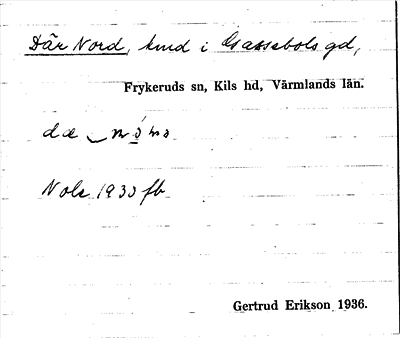 Där Nord, lund i Gassebols gd,
Frykeruds sn, Kils hd, Värmlands län.
dæ
Nols 1933 fb
Gertrud Erikson 1936.